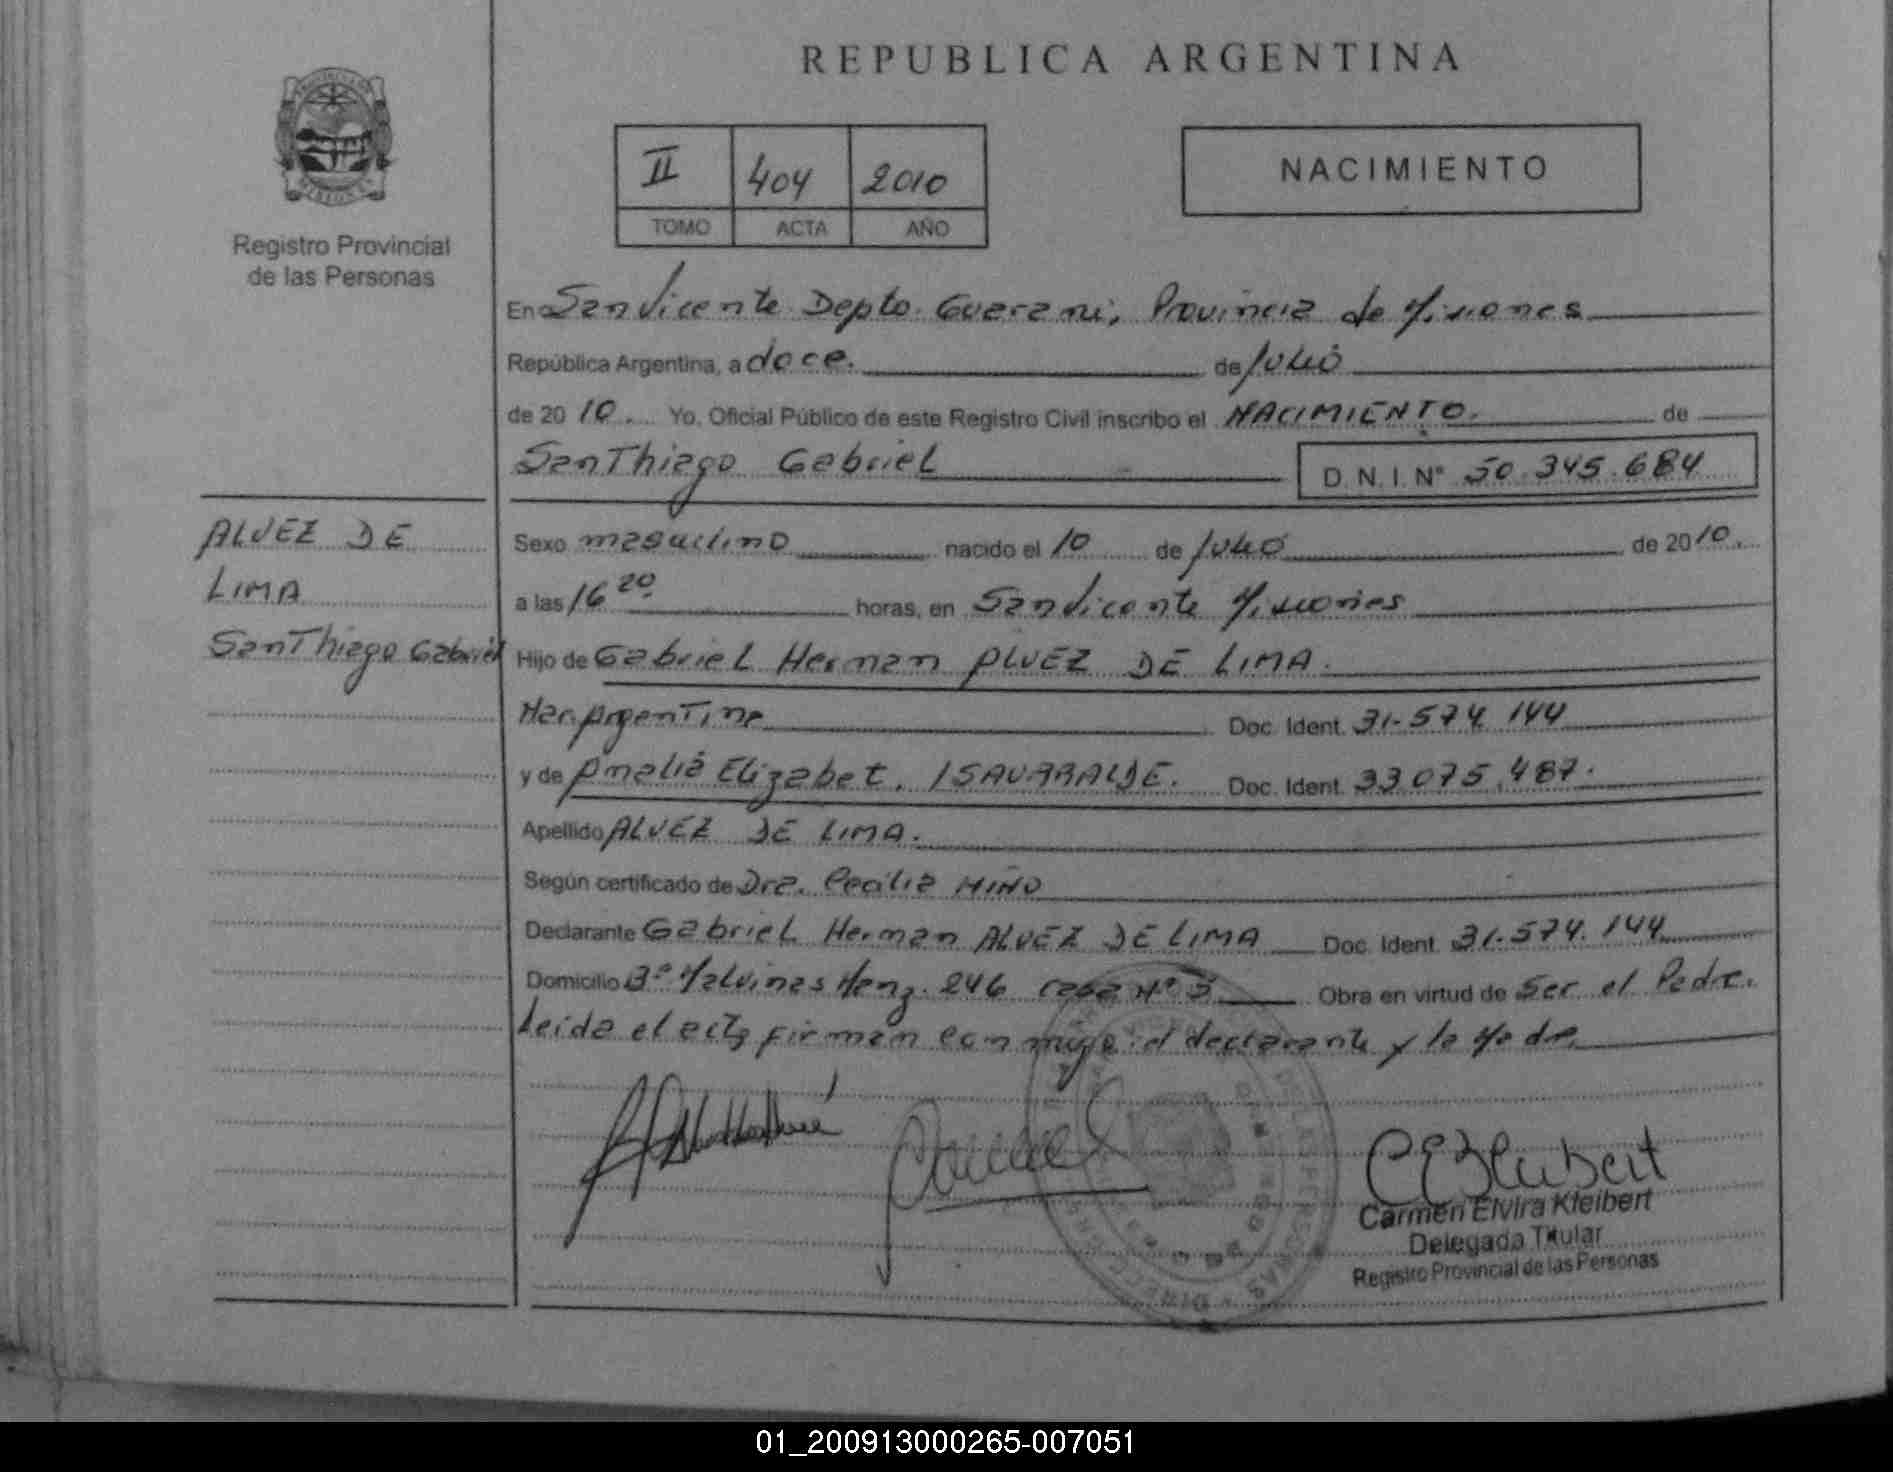 REPUBLICA ARGENTINA
PROVINCIA DE MISIONES
Registro Provincial
de las Personas
II 404 2010
TOMO ACTA AÑO
NACIMIENTO
En San Vicente Depto. Guarani, Provincia de Misiones
República Argentina, a doce. de Julio
de 20 10. Yo, Oficial Público de este Registro Civil inscribo el NACIMIENTO. de
SanThiago Gabriel D.N.I. Nº 50.345.684
ALVEZ DE
LIMA
SanThiago Gabriel
Sexo masculino nacido el 10 de Julio de 20 10.
a las 16 20. horas, en San Vicente Misiones
Hijo de Gabriel Herman ALVEZ DE LIMA.
Nac. Argentina Doc. Ident. 31.574.144
y de Amalia Elizabet. ISAURRALDE. Doc. Ident. 33.075.487.
Apellido ALVEZ DE LIMA.
Según certificado de Dra. Cecilia MIÑO
Declarante Gabriel Herman ALVEZ DE LIMA Doc. Ident. 31.574.144
Domicilio Bº Malvinas Manz. 246 casa Nº 3 Obra en virtud de Ser el Padre.
Leida el acta firman conmigo el declarante y la Madre.
Carmen Elvira Kleibert
Delegada Titular
Registro Provincial de las Personas
01_200913000265-007051